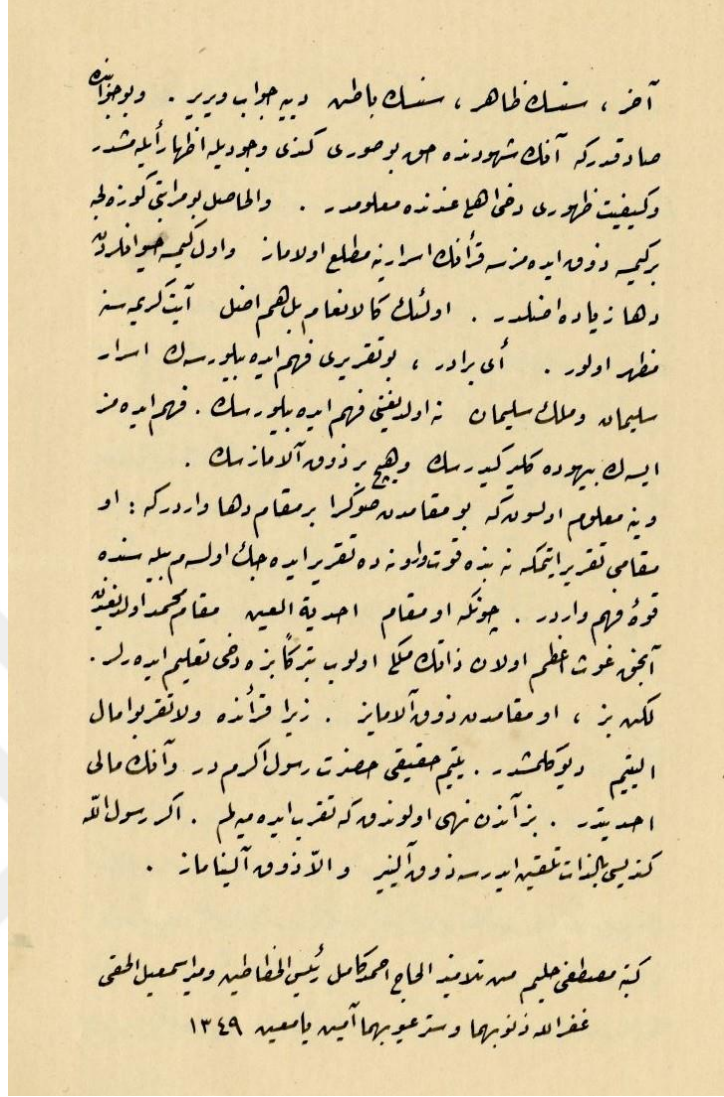 آخر ، سنسك ظاهر ، سنسك باطن ديه جواب ويرير . وبو جوابنده
صادقدركه آنك شهودنده حق بو صورى كندى وجوديله اظهار ايله مشدر
وكيفيت ظهورى دخى اهل عندنده معلومدر . والحاصل بو مراتبى كوزلجه
بركيمسه ذوق ايده مزسه قرآنك اسرارينه مطلع اولاماز واول كيمسه حيوانلردن
دها زياده اضلدر . اولئك كالانعام بل هم اضل آيت كريمه سنه
مظهر اولور . أى برادر ، بو تقريرى فهم ايده بيلورسه ك اسرار
سليمان وملك سليمان نه اولديغنى فهم ايده بيلورسك . فهم ايده مز
ايسه ك بيهوده كلير كيدرسك وهيچ بر ذوق آلامازسك .
وينه معلوم اولسون كه بو مقامدن صوكرا بر مقام دها واردركه : او
مقامى تقرير ايتمكه نه بنده قوت وار ونه ده تقرير ايده جك اولسه م بيله سنده
قوهٔ فهم واردر . چونكه او مقام احدية العين مقام محمد اولديغندن
آنجق غوث اعظم اولان ذاتك ملكى اولوب تبركاً بزه دخى تعليم ايدرلر .
لكن بز ، او مقامدن ذوق آلامايز . زيرا قرآنده ولا تقربوا مال
اليتيم ديو كلمشدر . يتيم حقيقى حضرت رسول اكرم در وآنك مالى
احديتدر . بز آندن نهى اولوندق كه تقرب ايده ميه لم . اكر رسول الله
كنديسى بالذات تلقين ايدرسه ذوق آلينير والا ذوق آلينا ماز .
كتبه مصطفى حليم من تلاميذ الحاج احمد كامل رئيس الخطاطين وميد اسمعيل الحقى
غفر الله ذنوبهما وستر عيوبهما آمين يا معين ١٣٤٩